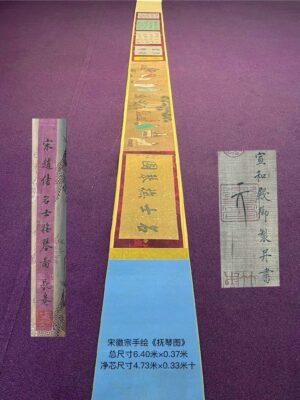 名士撫琴圖
宋趙佶名士撫琴圖長卷
宣和殿御製并書
宋徽宗手绘《抚琴图》
总尺寸6.40米×0.37米
净芯尺寸4.73米×0.33米十